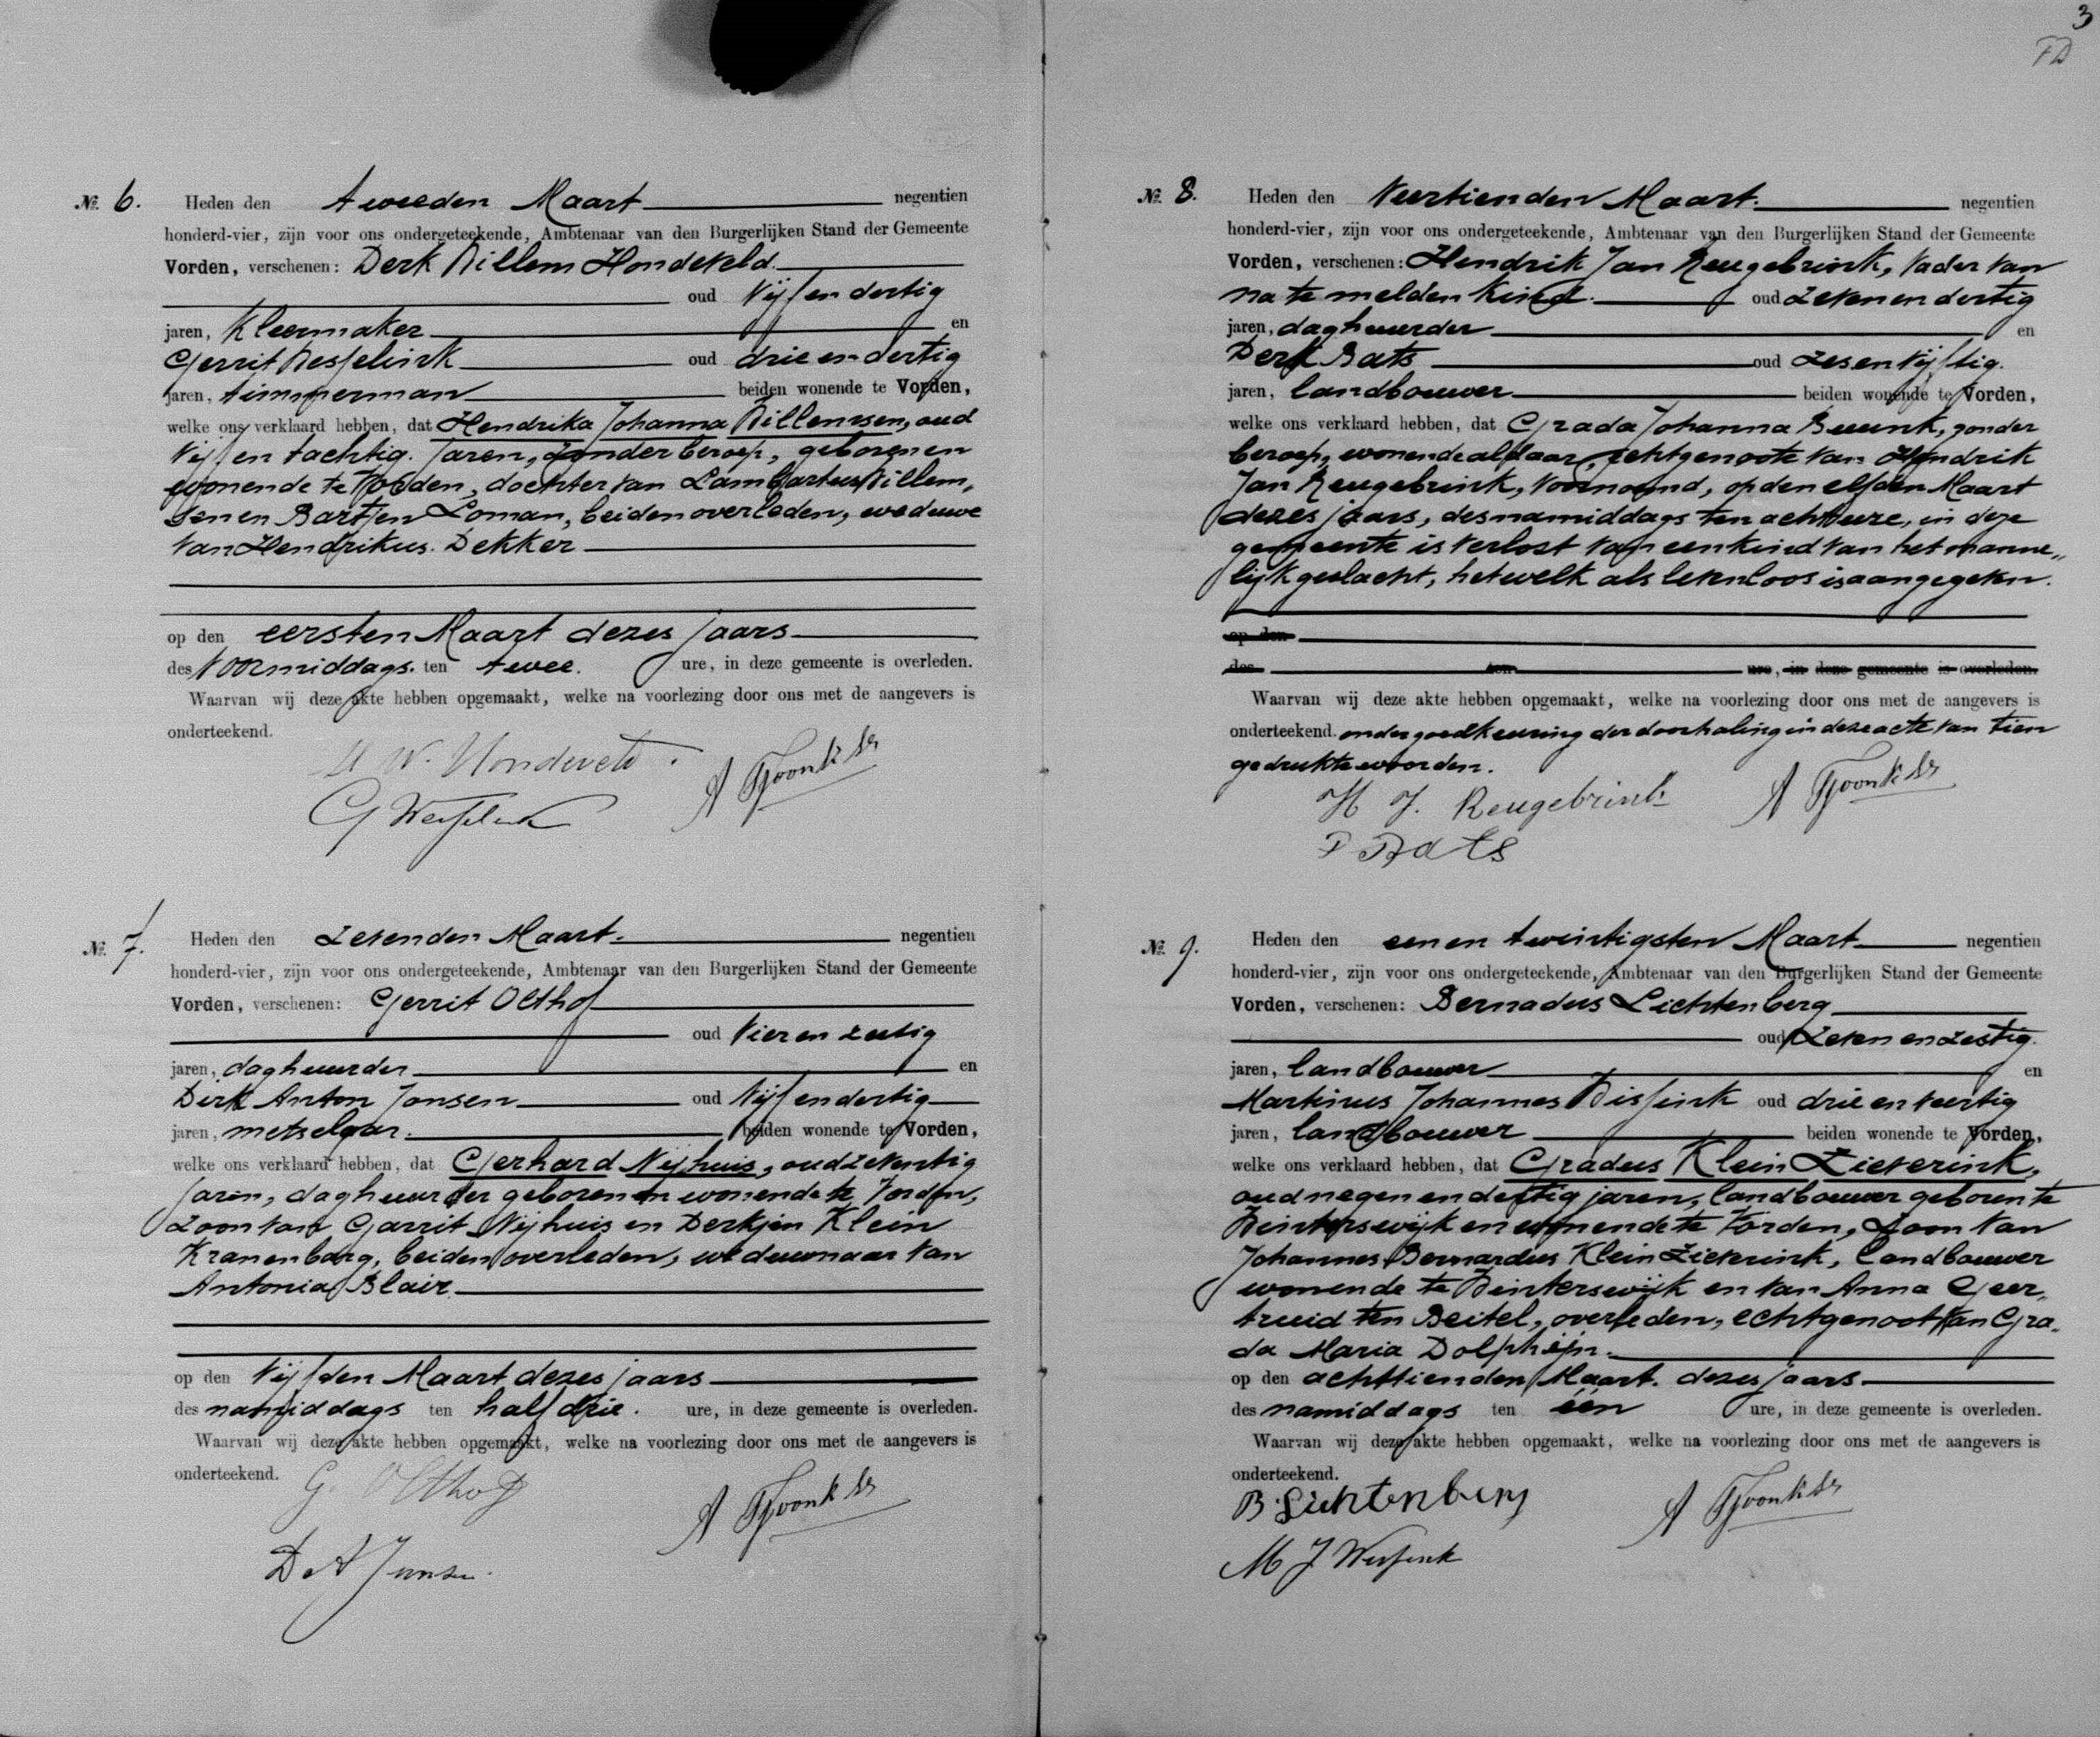 3
FD
№. 6. Heden den tweeden Maart negentien
honderd-vier, zijn voor ons ondergeteekende, Ambtenaar van den Burgerlijken Stand der Gemeente
Vorden, verschenen: Derk Willem Hondeveld.
oud Vijf en dertig
jaren, Kleermaker en
Gerrit Wesselink oud drie en dertig
jaren, timmerman beiden wonende te Vorden,
welke ons verklaard hebben, dat Hendrika Johanna Willemsen, oud
Vijf en tachtig. Jaren, zonder beroep, geboren en
wonende te Vorden, dochter van Lambartus Willem,
sen en Bartjen Loman, beiden overleden, weduwe
van Hendrikus. Dekker
op den eersten Maart dezes jaars
des Voormiddags. ten twee. ure, in deze gemeente is overleden.
Waarvan wij deze akte hebben opgemaakt, welke na voorlezing door ons met de aangevers is
onderteekend.
W. Hondeveld.
G Wesselink
№. 7. Heden den Zevenden Maart. negentien
honderd-vier, zijn voor ons ondergeteekende, Ambtenaar van den Burgerlijken Stand der Gemeente
Vorden, verschenen: Gerrit Olthof
oud Vier en zestig
jaren, daghuurder en
Dirk Anton Jansen oud Vijf en dertig
jaren, metselaar. beiden wonende te Vorden,
welke ons verklaard hebben, dat Gerhard Nijhuis, oud zeventig
Jaren, daghuurder geboren en wonende te Vorden,
Zoon van Garrit Nijhuis en Derkjen Klein
Kranenbarg, beiden overleden, weduwnaar van
Antonia Blair.
op den Vijfden Maart dezes jaars
des namiddags ten half drie. ure, in deze gemeente is overleden.
Waarvan wij deze akte hebben opgemaakt, welke na voorlezing door ons met de aangevers is
onderteekend.
G. Olthof
D A Jansen.
№. 8. Heden den Veertienden Maart. negentien
honderd-vier, zijn voor ons ondergeteekende, Ambtenaar van den Burgerlijken Stand der Gemeente
Vorden, verschenen: Hendrik Jan Reugebrink, Vader van
na te melden Kind. oud Zeven en dertig
jaren, daghuurder en
Derk Bats oud Zes en Vijftig.
jaren, landbouwer beiden wonende te Vorden,
welke ons verklaard hebben, dat Grada Johanna Buunk, zonder
beroep, wonende aldaar, echtgenoote van Hendrik
Jan Reugebrink, Voornoemd, op den elfden Maart
dezes jaars, des namiddags ten acht ure, in deze
gemeente is verlost van een kind van het manne„
lijk geslacht, hetwelk als levenloos is aangegeven.
op den
des ten ure, in deze gemeente is overleden.
Waarvan wij deze akte hebben opgemaakt, welke na voorlezing door ons met de aangevers is
onderteekend. onder goedkeuring der doorhaling in deze acte van tien
gedrukte woorden.
H J. Reugebrink
D Bats
№. 9. Heden den een en twintigsten Maart negentien
honderd-vier, zijn voor ons ondergeteekende, Ambtenaar van den Burgerlijken Stand der Gemeente
Vorden, verschenen: Bernadus Lichtenberg
oud Zeven en zestig.
jaren, landbouwer en
Martinus Johannes Wissink oud drie en veertig
jaren, landbouwer beiden wonende te Vorden,
welke ons verklaard hebben, dat Gradus Klein Zieverink,
oud negen en dertig jaren, landbouwer geboren te
Winterswijk en wonende te Vorden, Zoon van
Johannes Bernardus Klein Zieverink, landbouwer
wonende te Winterswijk en van Anna Geer„
truid ten Beitel, overleden, echtgenoot van Gra„
da Maria Dolphijn.
op den achttienden Maart. dezes jaars
des namiddags ten één ure, in deze gemeente is overleden.
Waarvan wij deze akte hebben opgemaakt, welke na voorlezing door ons met de aangevers is
onderteekend.
B. Lichtenberg
M J Wissink